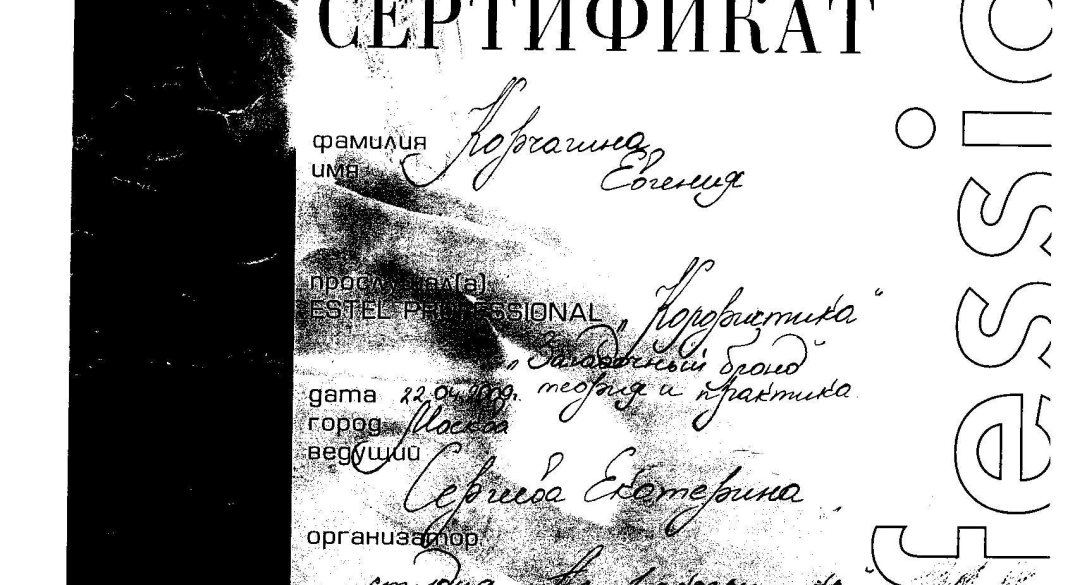 СЕРТИФИКАТ
фамилия Корчагина
имя Евгения
прослушал(а)
ESTEL PROFESSIONAL „Колористика“
„Загадочный блонд“
дата 22.04.2009г. теория и практика
город Москва
ведущий
Сергиева Екатерина
организатор
студия
fessio